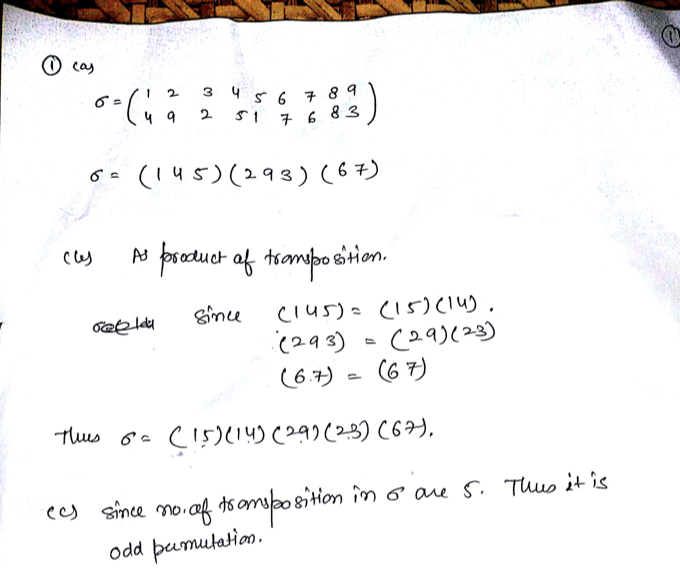 ① (a)
σ = ( 1 2 3 4 5 6 7 8 9
4 9 2 5 1 7 6 8 3 )
σ = (1 4 5) (2 9 3) (6 7)
(b) As product of transposition.
Since (145) = (15)(14).
(293) = (29)(23)
(67) = (67)
Thus σ = (15)(14)(29)(23)(67).
(c) Since no. of transposition in σ are 5. Thus it is
odd permutation.